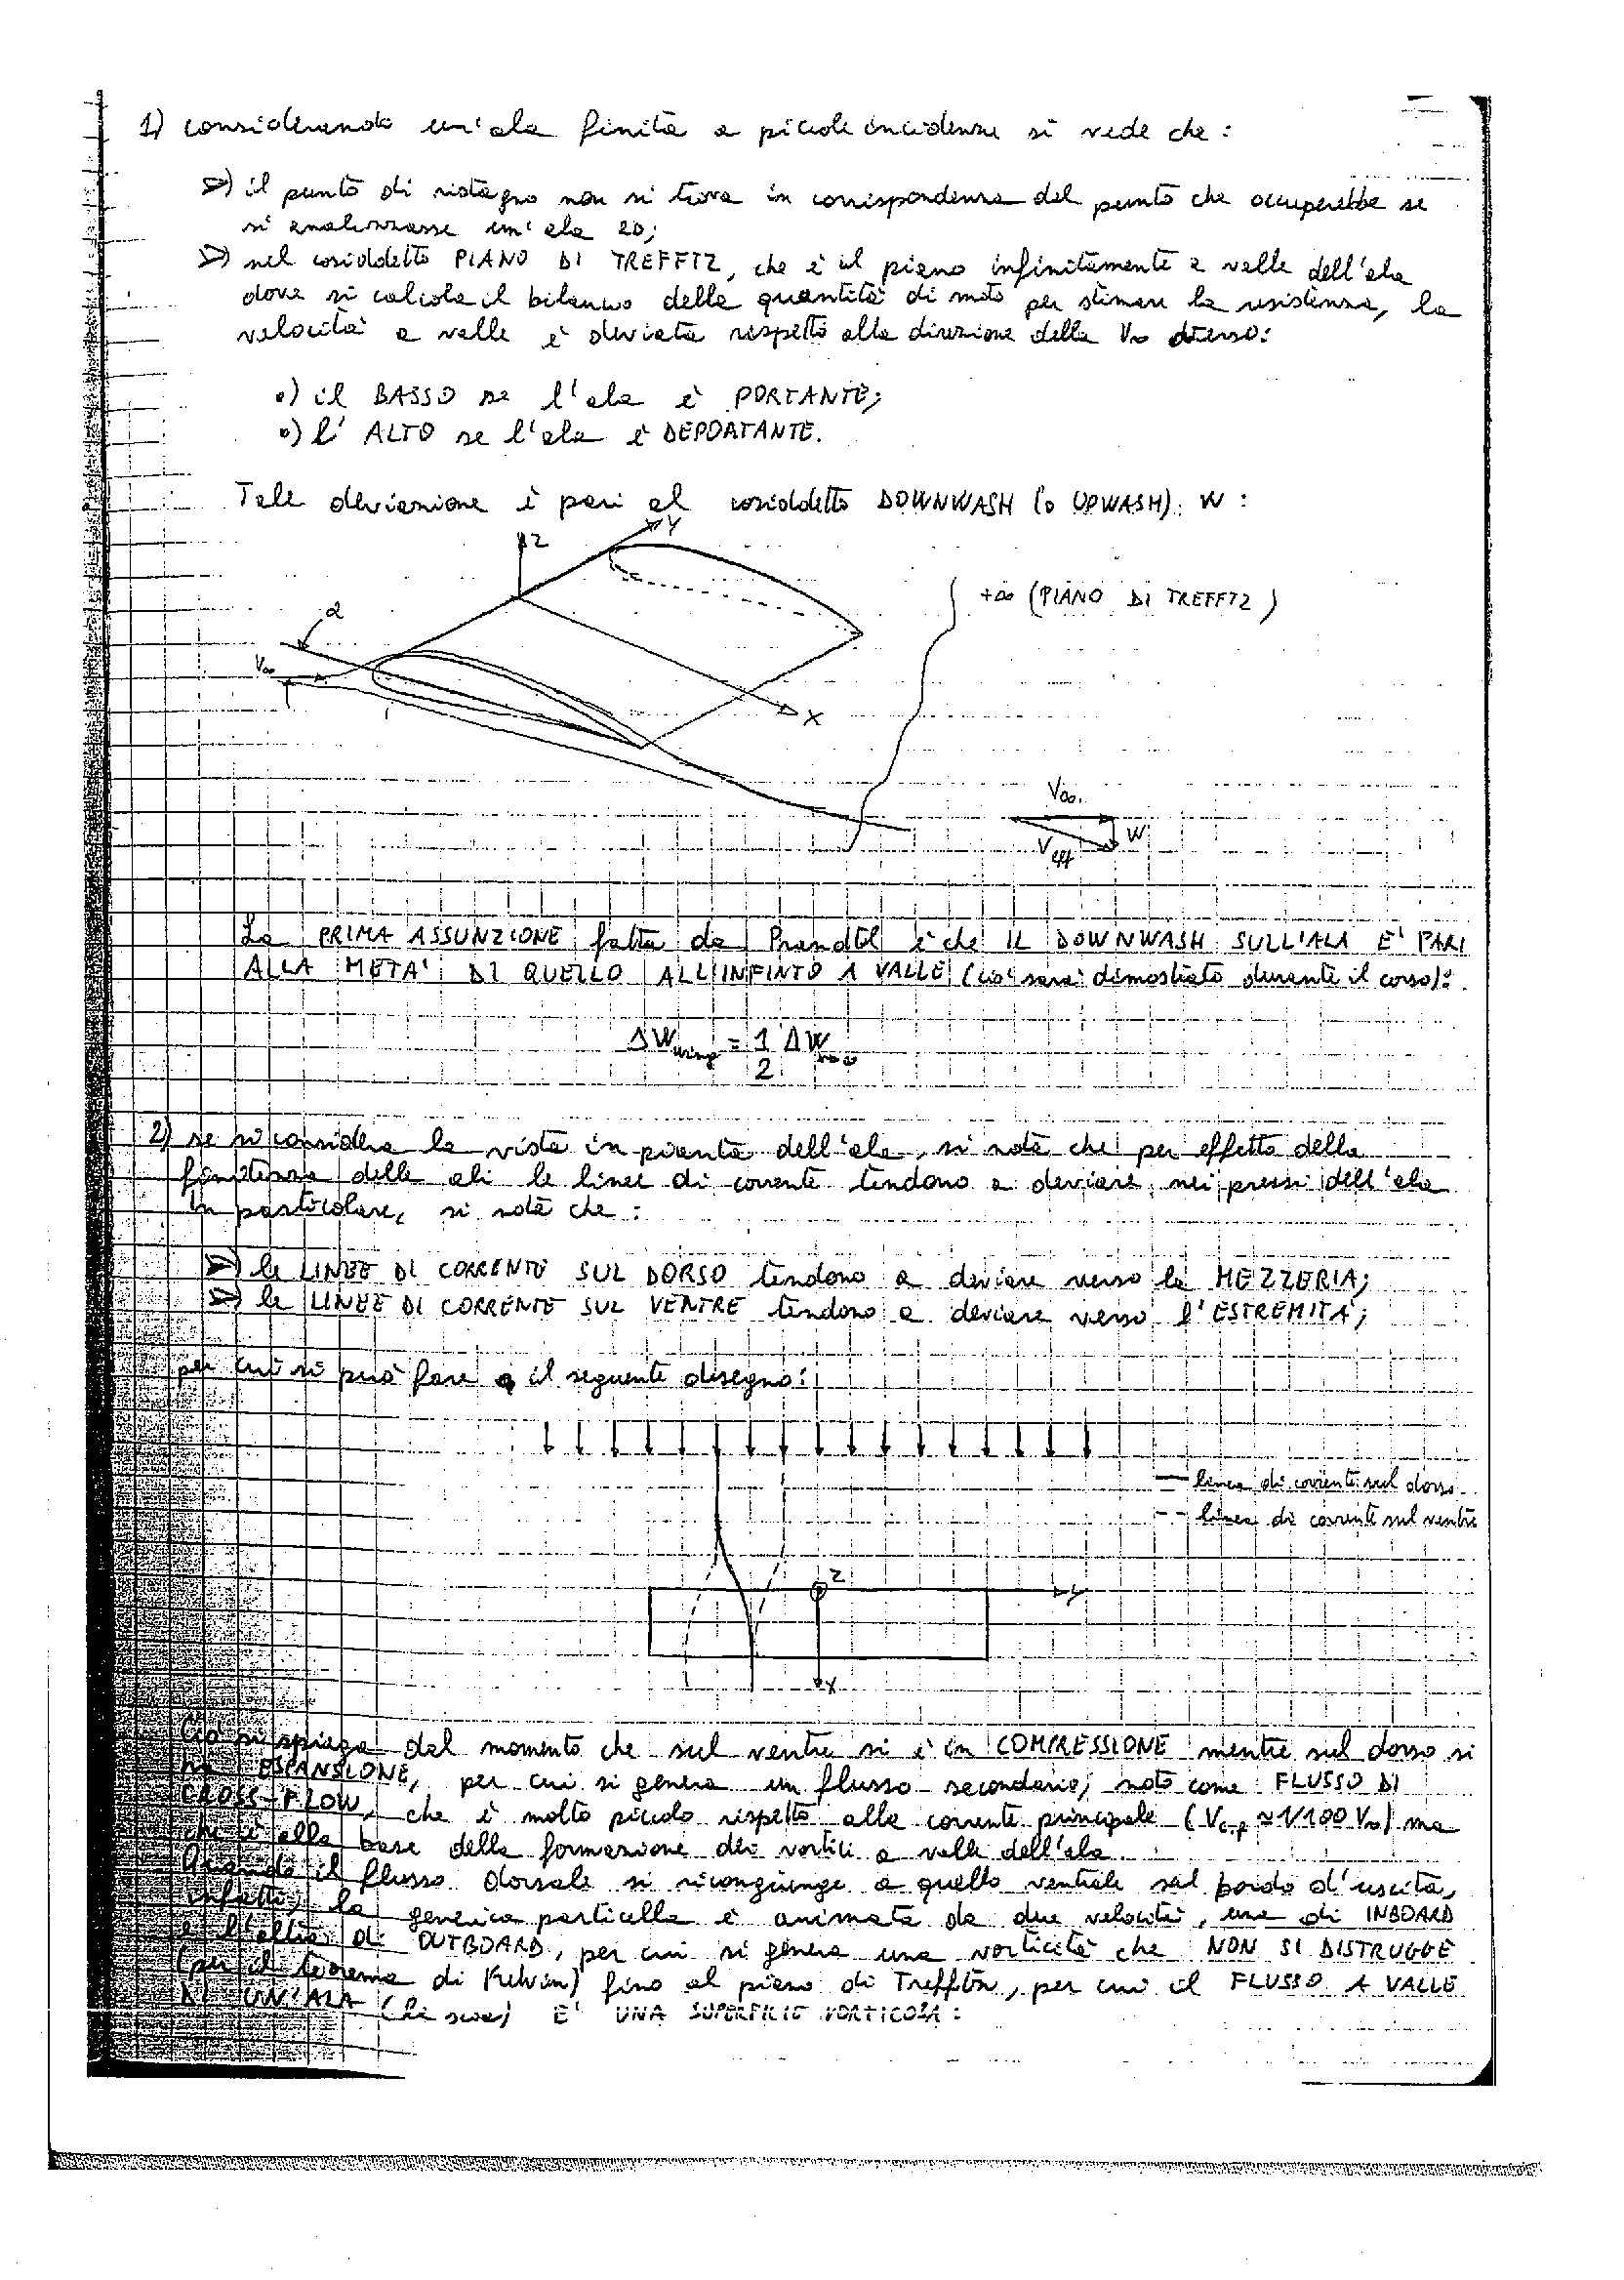 1) considerando un'ala finita a piccole incidenze si vede che:
=>) il punto di ristagno non si trova in corrispondenza del punto che occuperebbe se
si analizzasse un'ala 2D;
=>) nel cosiddetto PIANO DI TREFFTZ, che è il piano infinitamente a valle dell'ala
dove si calcola il bilancio delle quantità di moto per stimare la resistenza, la
velocità a valle è deviata rispetto alla direzione della V∞ verso:
•) il BASSO se l'ala è PORTANTE;
•) l'ALTO se l'ala è DEPORTANTE.
Tale deviazione è pari al cosiddetto DOWNWASH (o UPWASH) W:
Z
Y
+∞ (PIANO DI TREFFTZ)
α
V∞
X
V∞
W
Veff
La PRIMA ASSUNZIONE fatta da Prandtl è che IL DOWNWASH SULL'ALA E' PARI
ALLA META' DI QUELLO ALL'INFINTO A VALLE (ciò sarà dimostrato durante il corso):
ΔWwing = 1/2 ΔW+∞
2) se si considera la vista in pianta dell'ala, si nota che per effetto della
finitezza delle ali le linee di corrente tendono a deviare nei pressi dell'ala
In particolare, si nota che:
=>) le LINEE DI CORRENTE SUL DORSO tendono a deviare verso la MEZZERIA;
=>) le LINEE DI CORRENTE SUL VENTRE tendono a deviare verso l'ESTREMITÀ;
per cui si può fare il seguente disegno:
— linea di corrente sul dorso
-- linea di corrente sul ventre
Z
Y
X
Ciò si spiega dal momento che sul ventre si è in COMPRESSIONE mentre sul dorso si
ha ESPANSIONE, per cui si genera un flusso secondario, noto come FLUSSO DI
CROSS-FLOW, che è molto piccolo rispetto alla corrente principale (Vc.f ≈ 1/100 V∞) ma
che è alla base della formazione dei vortici a valle dell'ala.
Quando il flusso dorsale si ricongiunge a quello ventrale sul bordo d'uscita,
infatti, la generica particella è animata da due velocità, una di INBOARD
e l'altra di OUTBOARD, per cui si genera una vorticità che NON SI DISTRUGGE
(per il teorema di Kelvin) fino al piano di Trefftz, per cui il FLUSSO A VALLE
DI UN'ALA (la scia) E' UNA SUPERFICIE VORTICOSA: